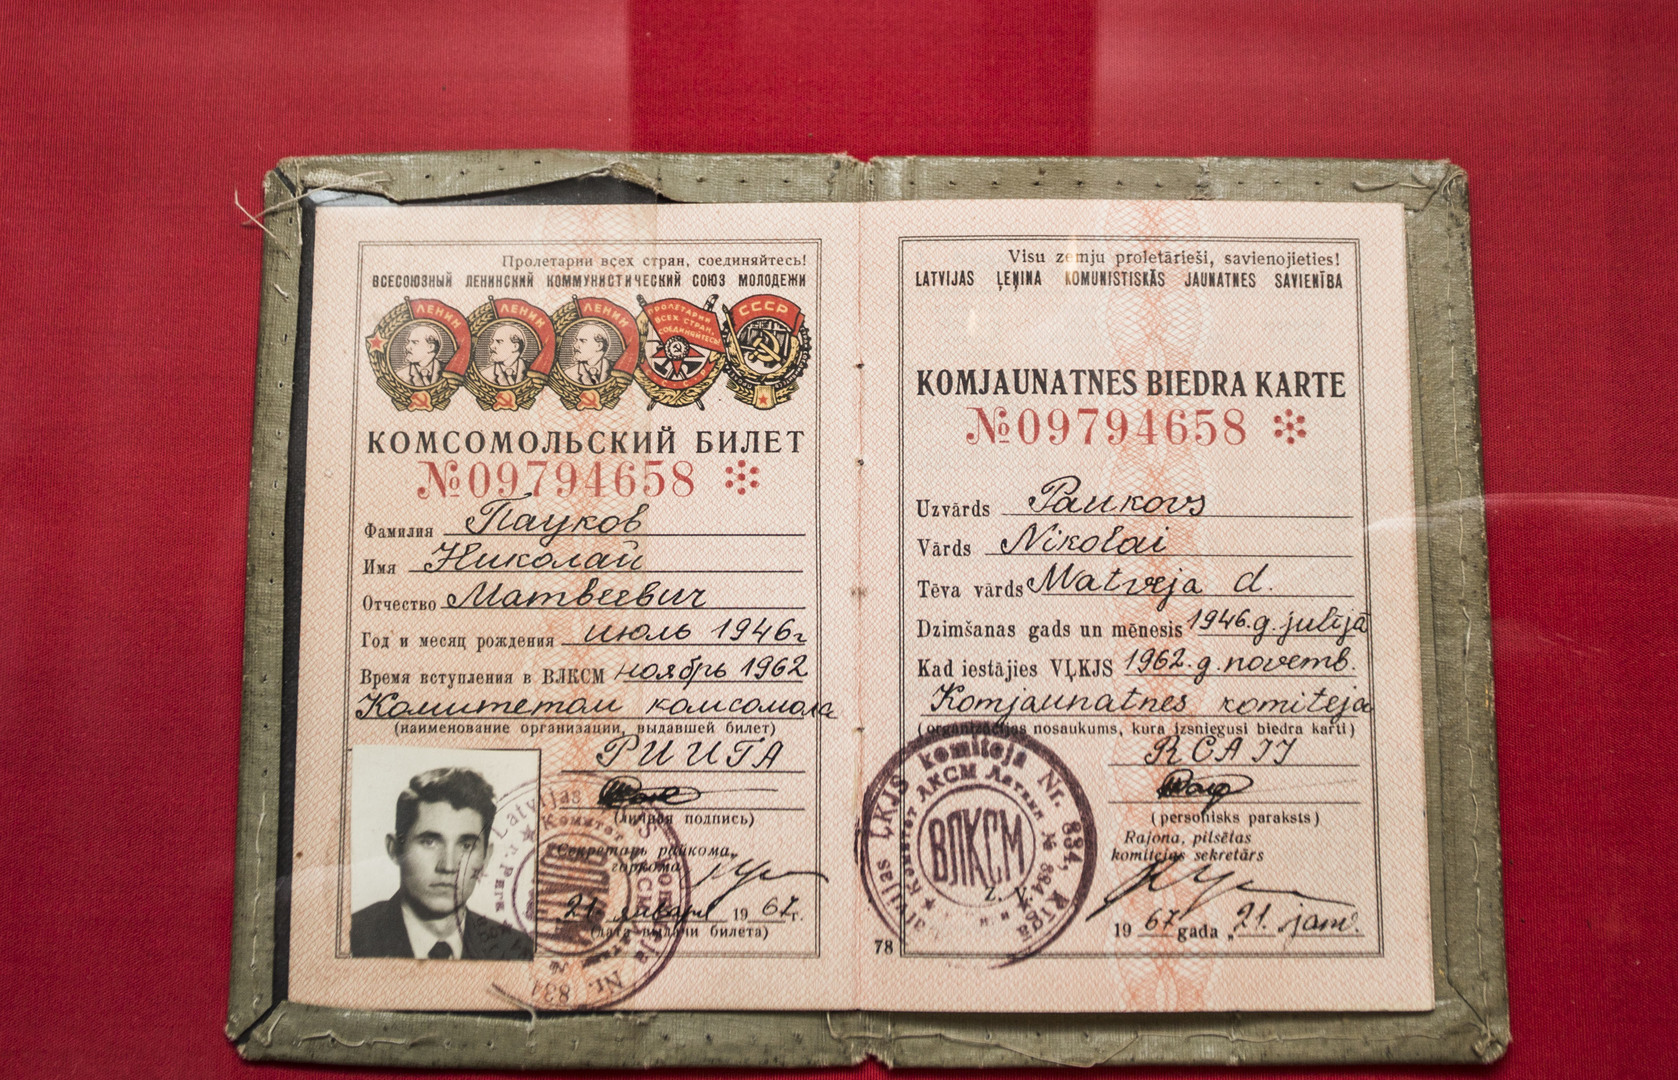 Пролетарии всех стран, соединяйтесь!
ВСЕСОЮЗНЫЙ ЛЕНИНСКИЙ КОММУНИСТИЧЕСКИЙ СОЮЗ МОЛОДЕЖИ
ЛЕНИН ЛЕНИН ЛЕНИН ПРОЛЕТАРИИ ВСЕХ СТРАН, СОЕДИНЯЙТЕСЬ! СССР
КОМСОМОЛЬСКИЙ БИЛЕТ
№09794658
Фамилия Пауков
Имя Николай
Отчество Матвеевич
Год и месяц рождения июль 1946г
Время вступления в ВЛКСМ ноябрь 1962
Комитетом комсомола
(наименование организации, выдавшей билет)
РИИГА
(личная подпись)
Секретарь райкома,
горкома
21 января 1967г.
(дата выдачи билета)
Visu zemju proletārieši, savienojieties!
LATVIJAS ĻEŅINA KOMUNISTISKĀS JAUNATNES SAVIENĪBA
KOMJAUNATNES BIEDRA KARTE
№09794658
Uzvārds Paukovs
Vārds Nikolai
Tēva vārds Matveja d.
Dzimšanas gads un mēnesis 1946.g. jūlijā
Kad iestājies VĻKJS 1962.g. novemb.
Komjaunatnes komiteja
(organizācijas nosaukums, kura izsniegusi biedra karti)
RCAII
(personisks paraksts)
Rajona, pilsētas
komitejas sekretārs
1967 gada „21. janv.
Latvijas ĻKJS komiteja Nr. 834, Rīgā
Комитет ЛКСМ Латвии № 834
ВЛКСМ
Z. V.
78